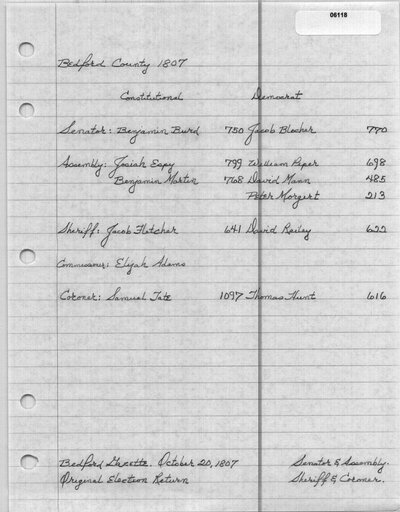 06118
Bedford County 1807
Constitutional Democrat
Senator: Benjamin Burd 750 Jacob Blocher 770
Assembly: Josiah Espy 799 William Piper 698
Benjamin Martin 768 David Mann 485
Peter Morgert 213
Sheriff: Jacob Fletcher 641 David Reiley 622
Commissioner: Elijah Adams
Coroner: Samuel Tate 1097 Thomas Hunt 616
Bedford Gazette. October 20, 1807 Senator & Assembly.
Original Election Return Sheriff & Coroner.